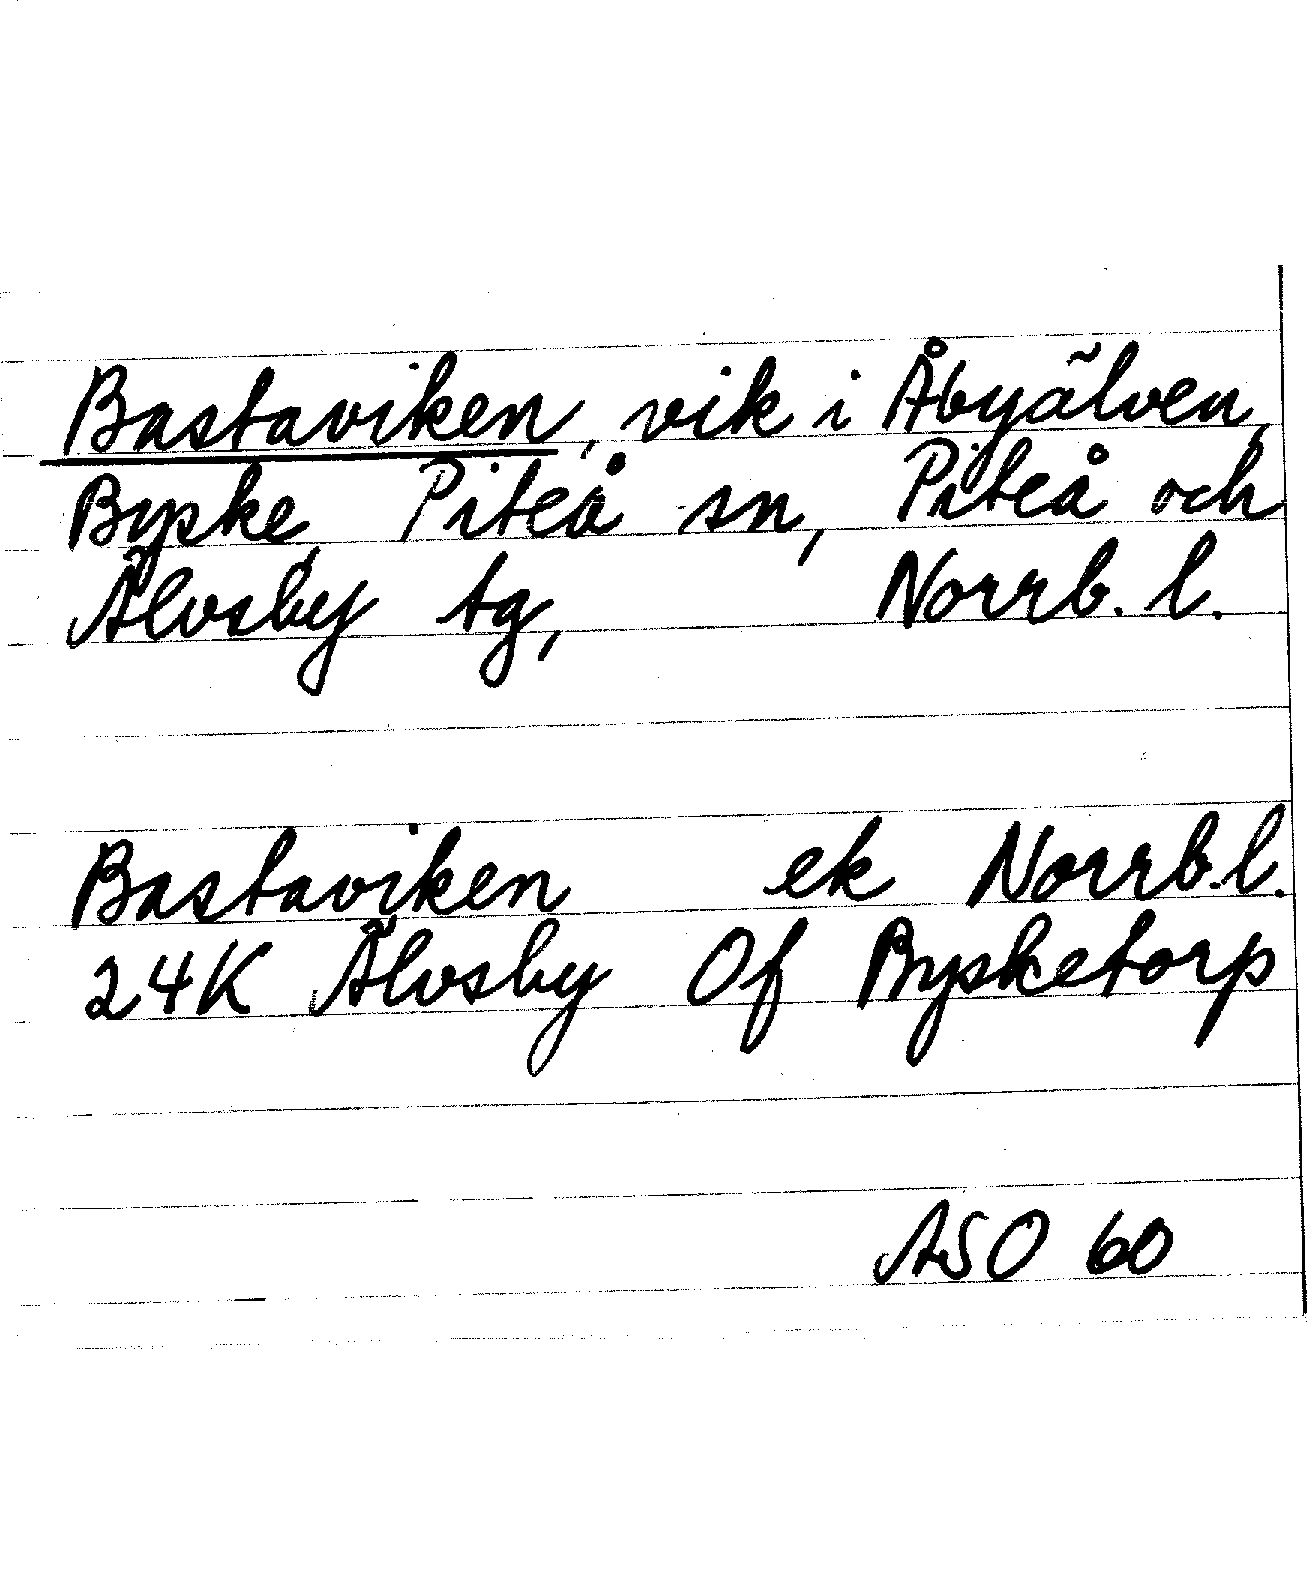 Bastaviken, vik i Åbyälven,
Byske, Piteå sn, Piteå och
Älvsby tg, Norrb. l.
Bastaviken ek Norrb. l.
24K Älvsby 0f Bysketorp
ASO 60